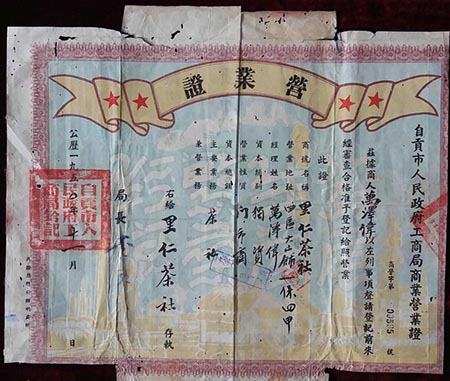 營業證
自貢市人民政府工商局商業營業證
茲據商人萬澤偉以左列事項聲請登記前來
經審查合格准予登記給照營業
此證
商號名稱 里仁茶社
營業地址 四區大
經理姓名 萬澤偉
資本類別 獨資
營業性質 門市
資本總額
主要業務 茶社
兼營業務
右給 里仁茶社 存執
局長
公歷一九五 年十一月 日
自貢市人民政府工商局鈐記